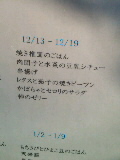 12/13 ～ 12/19
焼き椎茸のごはん
肉団子と水菜の豆乳シチュー
串揚げ
レタスと茄子の焼きビーフン
かぼちゃとセロリのサラダ
柿のゼリー
1/2 ～ 1/9